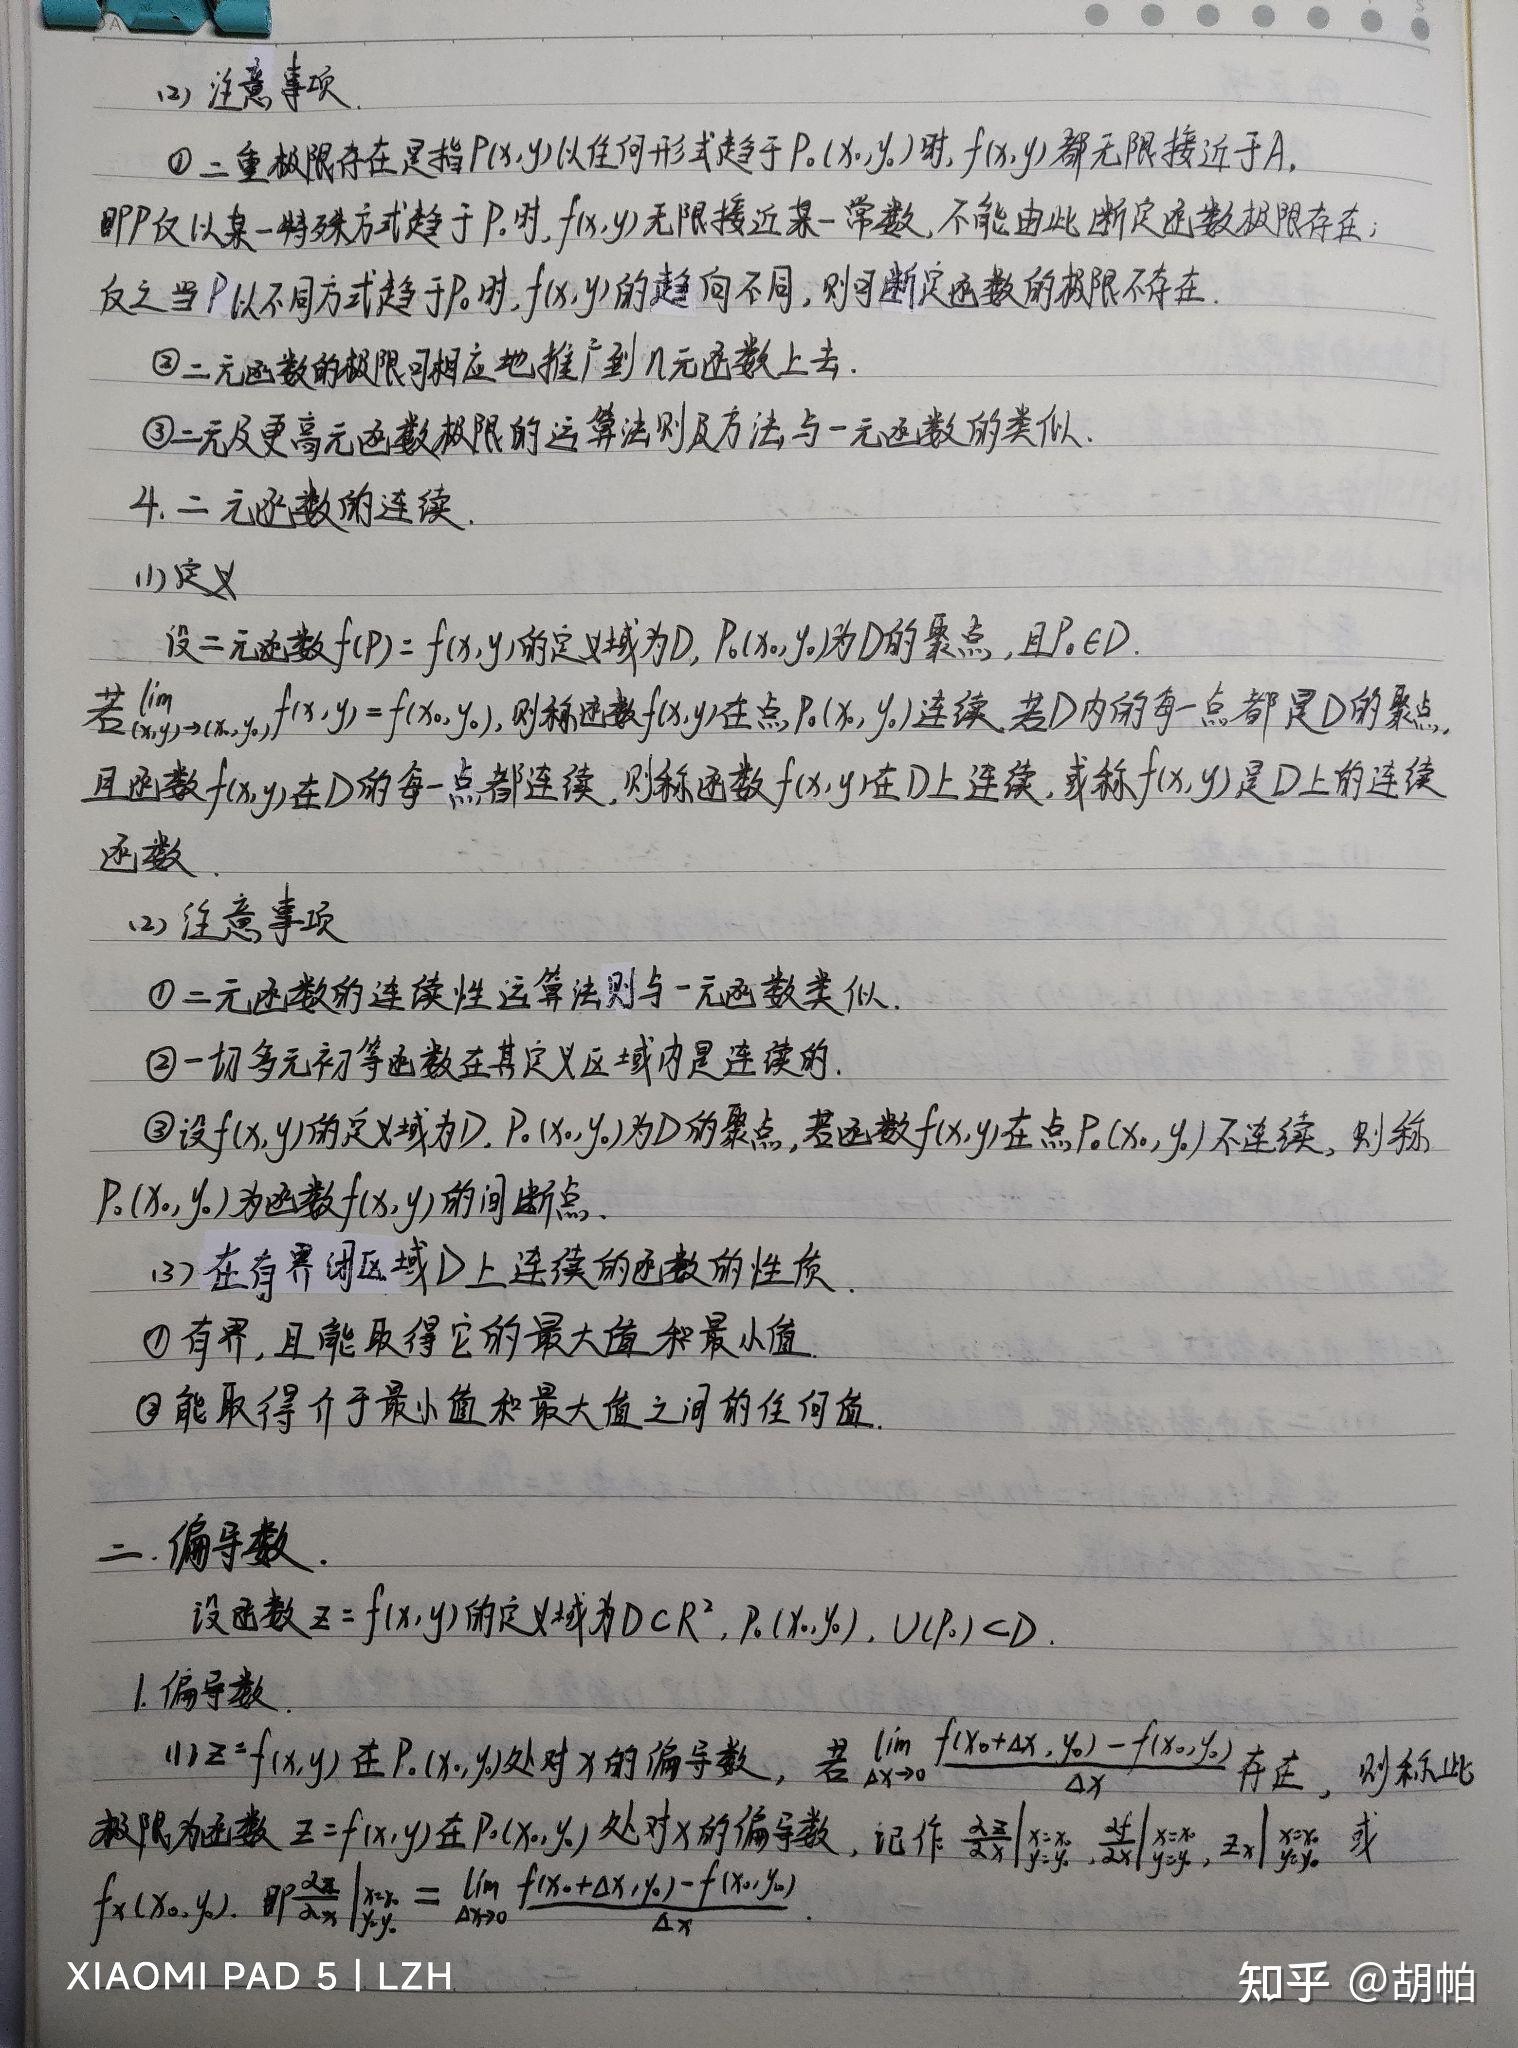 (2) 注意事项.
①二重极限存在是指P(x,y)以任何形式趋于P₀(x₀,y₀)时, f(x,y)都无限接近于A.
即P仅以某一特殊方式趋于P₀时, f(x,y)无限接近某一常数, 不能由此断定函数极限存在;
反之当P以不同方式趋于P₀时, f(x,y)的趋向不同, 则可断定函数的极限不存在.
②二元函数的极限可相应地推广到n元函数上去.
③二元及更高元函数极限的运算法则及方法与一元函数的类似.
4. 二元函数的连续.
(1) 定义
设二元函数f(P)=f(x,y)的定义域为D, P₀(x₀,y₀)为D的聚点, 且P₀∈D.
若lim(x,y)→(x₀,y₀) f(x,y)=f(x₀,y₀), 则称函数f(x,y)在点P₀(x₀,y₀)连续. 若D内的每一点都是D的聚点,
且函数f(x,y)在D的每一点都连续, 则称函数f(x,y)在D上连续, 或称f(x,y)是D上的连续
函数.
(2) 注意事项
①二元函数的连续性运算法则与一元函数类似.
②一切多元初等函数在其定义区域内是连续的.
③设f(x,y)的定义域为D, P₀(x₀,y₀)为D的聚点, 若函数f(x,y)在点P₀(x₀,y₀)不连续, 则称
P₀(x₀,y₀)为函数f(x,y)的间断点.
(3) 在有界闭区域D上连续的函数的性质.
①有界, 且能取得它的最大值和最小值.
②能取得介于最小值和最大值之间的任何值.
二. 偏导数.
设函数z=f(x,y)的定义域为D⊂R², P₀(x₀,y₀), U(P₀)⊂D.
1. 偏导数.
(1) z=f(x,y)在P₀(x₀,y₀)处对x的偏导数, 若 lim Δx→0 (f(x₀+Δx,y₀)-f(x₀,y₀))/Δx 存在, 则称此
极限为函数z=f(x,y)在P₀(x₀,y₀)处对x的偏导数, 记作 ∂z/∂x|x=x₀ y=y₀, ∂f/∂x|x=x₀ y=y₀, zx|x=x₀ y=y₀ 或
fx(x₀,y₀). 即∂z/∂x|x=x₀ y=y₀ = lim Δx→0 (f(x₀+Δx,y₀)-f(x₀,y₀))/Δx.
XIAOMI PAD 5 | LZH
知乎 @胡帕